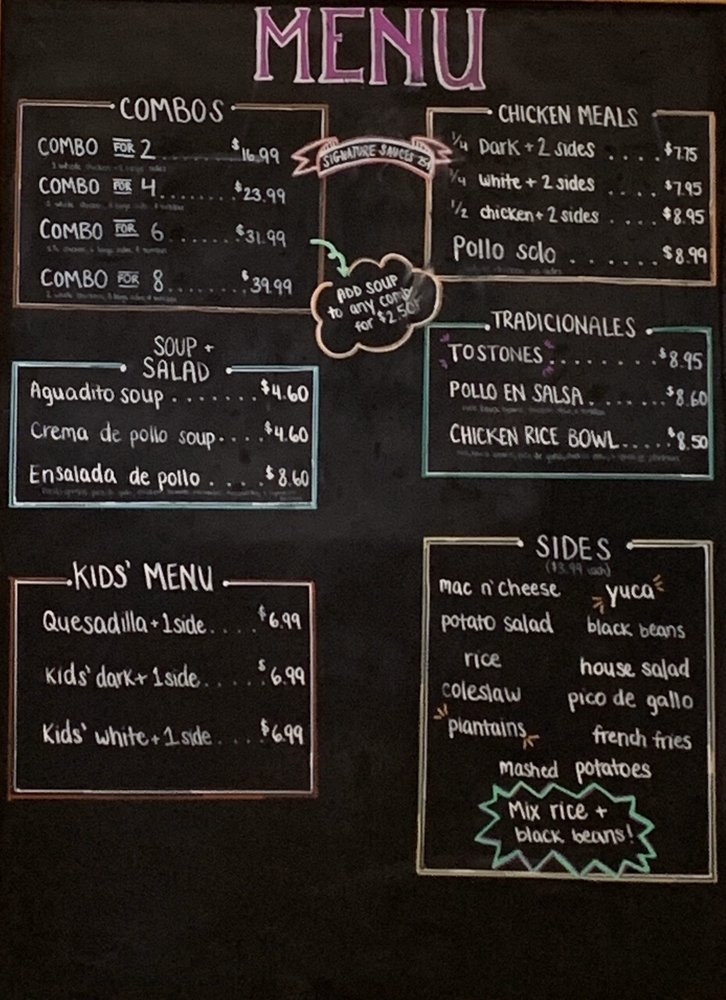 MENU
COMBOS
COMBO FOR 2 ........ $16.99
COMBO FOR 4 ........ $23.99
COMBO FOR 6 ....... $31.99
COMBO FOR 8 ........ $39.99
SIGNATURE SAUCES 25¢
ADD SOUP
to any combo
for $2.50!
CHICKEN MEALS
1/4 Dark + 2 sides .... $7.75
1/4 white + 2 sides .... $7.95
1/2 chicken + 2 sides .... $8.95
Pollo solo ....... $8.99
SOUP +
SALAD
Aguadito soup ....... $4.60
Crema de pollo soup.... $4.60
Ensalada de pollo .... $8.60
TRADICIONALES
TOSTONES ........ $8.95
POLLO EN SALSA ....... $8.60
CHICKEN RICE BOWL..... $8.50
KIDS' MENU
Quesadilla + 1 side.... $6.99
Kids' dark + 1 side.... $6.99
Kids' white + 1 side.... $6.99
SIDES
($3.99 each)
mac n' cheese yuca
potato salad black beans
rice house salad
coleslaw pico de gallo
plantains french fries
mashed potatoes
Mix rice +
black beans!